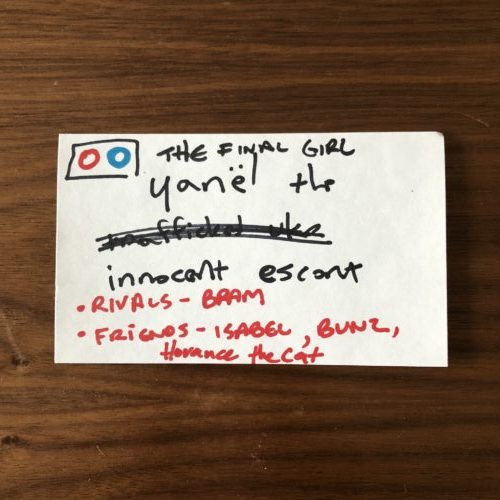 THE FINAL GIRL
Yanë the
trafficked
innocent escort
• RIVALS - BRAM
• FRIENDS - ISABEL, BUNZ,
Horance the Cat